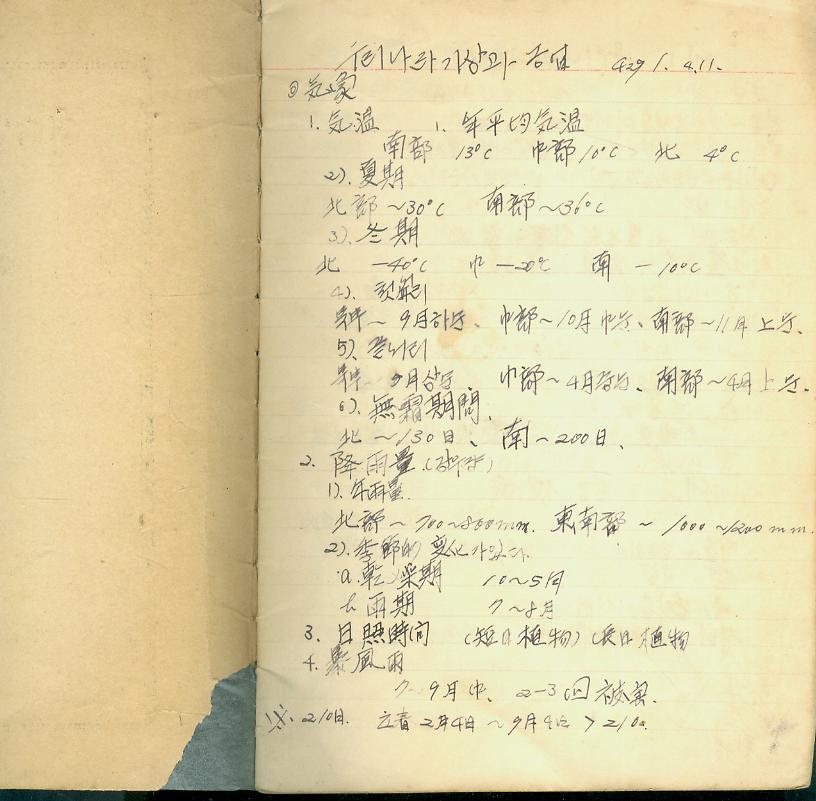 우리나라 기상과 4291. 4. 11.
◎ 気象
1. 気温 1. 年平均気温
南部 13°C 中部 10°C 北 4°C
2). 夏期
北部 ~30°C 南部 ~36°C
3). 冬期
北 -40°C 中 -20°C 南 -10°C
4). 첫서리
北部 ~ 9月하순、中部 ~ 10月 中순、南部 ~ 11月 上순、
5). 끝서리
北部 5月상순、中部 ~ 4月중순、南部 ~ 4月 上순、
6). 無霜期間、
北 ~ 130日、南 ~ 200日、
2. 降雨量 (강우량)
1). 年雨量.
北部 ~ 700~800mm. 東南部 ~ 1000 ~1200 mm.
2). 季節的 変化가있다
a. 乾燥期 10~5月
b 雨期 7~8月
3. 日照時間 (短日植物) (長日植物
4. 暴風雨
7 9月中、 2-3回 被害.
※. 210日. 立春 2月4日 ~ 9月4日 > 210